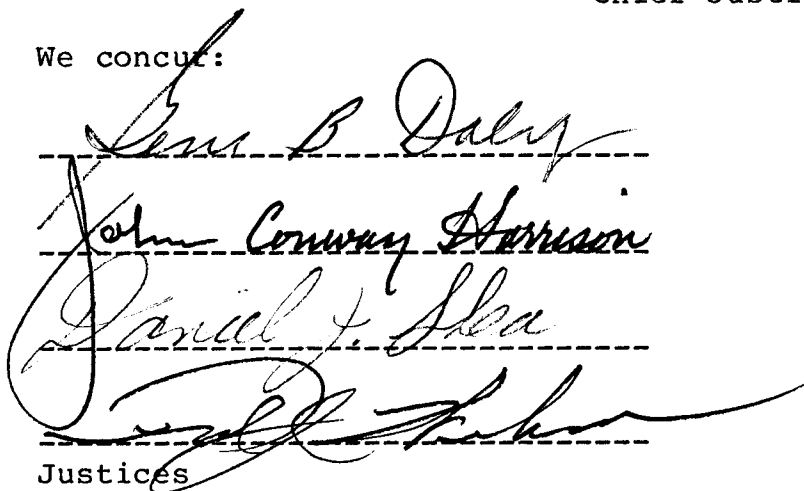 Chief Justi
We concur:
Gene B Daly
John Conway Harrison
Daniel J. Shea
Justices